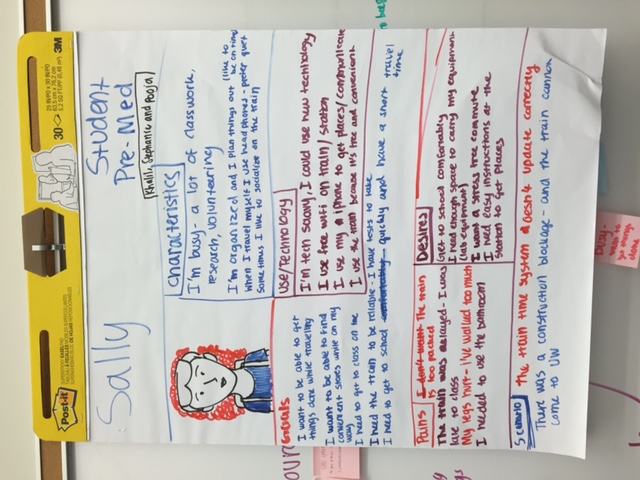 Post-it
SUPERSTICKY EASEL PAD
TABLEAU À FEUILLES MOBILES SUPERCOLLANTES
30
25 IN/PO x 30 IN/PO
63,5 cm x 76,2 cm
5.2 SQ FT/PI² (0,48 m²)
3M
Sally
Student
Pre-Med
Khalil, Stephanie and Pooja
Characteristics
I'm busy - a lot of classwork,
research, volunteering
I'm organized and I plan things out (like to be on time)
When I travel myself I use headphones - prefer quiet
Sometimes I like to socialize on the train
Goals
I want to be able to get
things done while travelling
I want to be able to find
convenient stores while on my
way
I need to get to class on time
I need the train to be reliable - I have tests to take
I need to get to school comfortably quickly and have a short travel
time
Use/Technology
I'm tech saavy, I could use new technology
I use free wifi on train/station
I use my iphone to get places/communicate
I use the train because it's free and convenient
Pains
I don't want The train
is too packed
The train was delayed - I was
late to class
My legs hurt - i've walked too much
I needed to use the bathroom
Desires
Get to school comfortably
I need enough space to carry my equipment
(lab equipment)
I want a stress free commute
I need easy instructions at the
station to get places
Scenario
The train time system doesn't update correctly
There was a construction blockage - and the train cannot
come to UW
Busy-
want to
get things
done